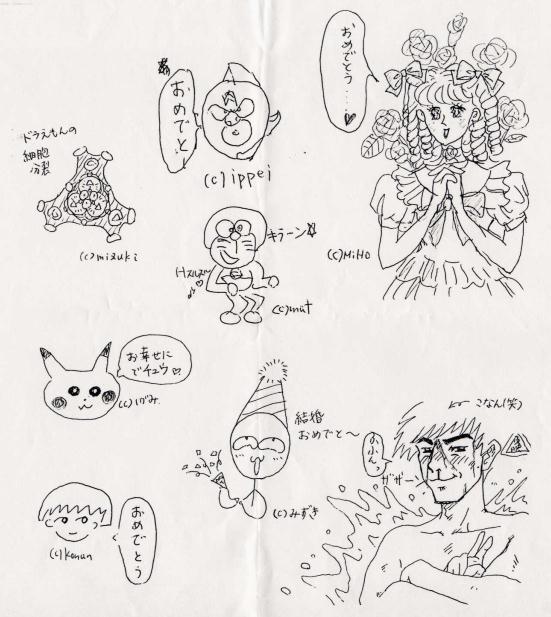 おめでとう....♡
おめでとー!
(c)ippei
ドラえもんの
細胞
分裂
(c)mizuki
キラーン
(c)mut
(c)MiHO
お幸せに
でチュウ♡
(c)いがみ
結婚
おめでと〜
(c)みずき
こなん(笑)
ザザーン
おめでとう
(c)Konan